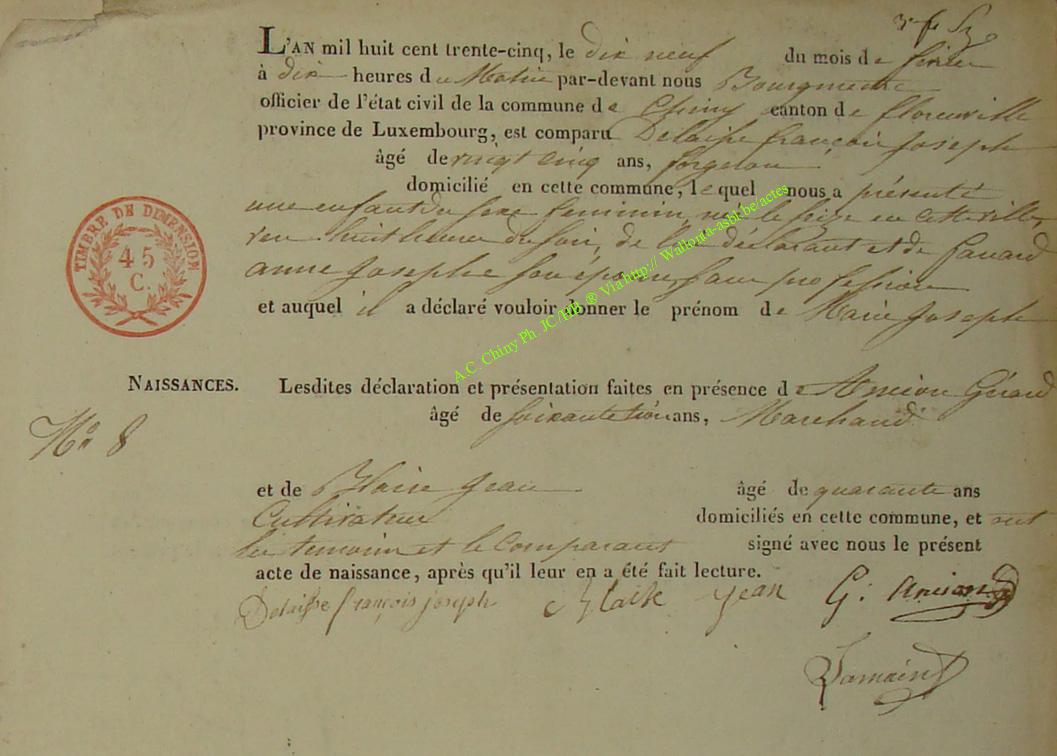 L'AN mil huit cent trente-cinq, le dix neuf du mois de février
à dix heures du Matin par-devant nous Bourgmestre
officier de l'état civil de la commune de Chiny canton de florenville
province de Luxembourg, est comparu Delaisse françois Joseph
âgé de vingt cinq ans, forgeron
domicilié en cette commune, lequel nous a présenté
une enfant du sexe feminin, née le seize en cette ville,
vers huit heures du soir, de lui déclarant et de
anne Josephe son épouse sans profession
et auquel il a déclaré vouloir donner le prénom de Marie Josephe
TIMBRE DE DIMENSION
45
C.
NAISSANCES.
N° 8
Lesdites déclaration et présentation faites en présence de Ancion Gérard
âgé de soixante ans, Marchand
et de Blaise Jean âgé de quarante ans
Cultivateur domiciliés en cette commune, et ont
les temoins et le Comparant signé avec nous le présent
acte de naissance, après qu'il leur en a été fait lecture.
Delaisse françois joseph Blaise jean G: Ancion
A.C. Chiny Ph. JC/HB ® Via http:// Wallonia-asbl.be/actes